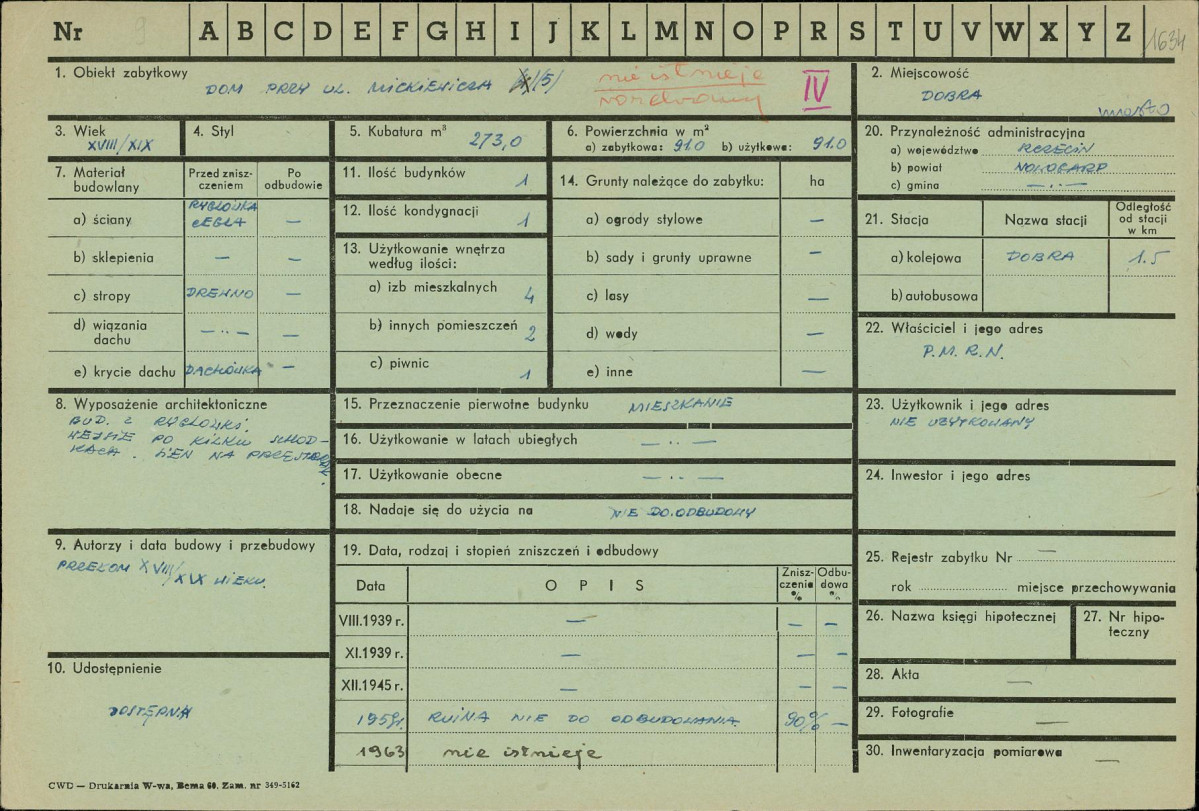 Nr 9 A B C D E F G H I J K L M N O P R S T U V W X Y Z 1634
1. Obiekt zabytkowy
DOM PRZY UL. MICKIEWICZA /5/
nie istnieje
rozebrany
IV
2. Miejscowość
DOBRA
miasto
3. Wiek
XVIII/XIX
4. Styl
5. Kubatura m³
273,0
6. Powierzchnia w m²
a) zabytkowa: 91.0 b) użytkowa: 91.0
20. Przynależność administracyjna
a) województwo SZCZECIN
b) powiat NOWOGARD
c) gmina — . —
7. Materiał budowlany
Przed zniszczeniem
Po odbudowie
a) ściany RYGLÓWKA CEGŁA —
b) sklepienia — —
c) stropy DREWNO —
d) wiązania dachu — .. — —
e) krycie dachu DACHÓWKA —
11. Ilość budynków 1
12. Ilość kondygnacji 1
13. Użytkowanie wnętrza
według ilości:
a) izb mieszkalnych 4
b) innych pomieszczeń 2
c) piwnic 1
14. Grunty należące do zabytku: ha
a) ogrody stylowe —
b) sady i grunty uprawne —
c) lasy —
d) wody —
e) inne —
21. Stacja Nazwa stacji Odległość od stacji w km
a) kolejowa DOBRA 1.5
b) autobusowa
22. Właściciel i jego adres
P.M.R.N.
8. Wyposażenie architektoniczne
BUD. Z RYGLÓWKI.
WEJŚCIE PO KILKU SCHOD-
KACH.
15. Przeznaczenie pierwotne budynku MIESZKANIE
16. Użytkowanie w latach ubiegłych — .. —
17. Użytkowanie obecne — .. —
18. Nadaje się do użycia na NIE DO ODBUDOWY
23. Użytkownik i jego adres
NIE UŻYTKOWANY
24. Inwestor i jego adres
9. Autorzy i data budowy i przebudowy
PRZEŁOM XVIII/
XIX WIEKU.
19. Data, rodzaj i stopień zniszczeń i odbudowy
Data OPIS Zniszczenie % Odbudowa %
VIII.1939 r. — — —
XI.1939 r. — — —
XII.1945 r. — — —
1959r. RUINA NIE DO ODBUDOWANIA. 90% —
1963 nie istnieje
25. Rejestr zabytku Nr —
rok miejsce przechowywania
26. Nazwa księgi hipotecznej
27. Nr hipoteczny
10. Udostępnienie
DOSTĘPNA
28. Akta —
29. Fotografie —
30. Inwentaryzacja pomiarowa —
CWD — Drukarnia W-wa, Bema 60. Zam. nr 349-5162